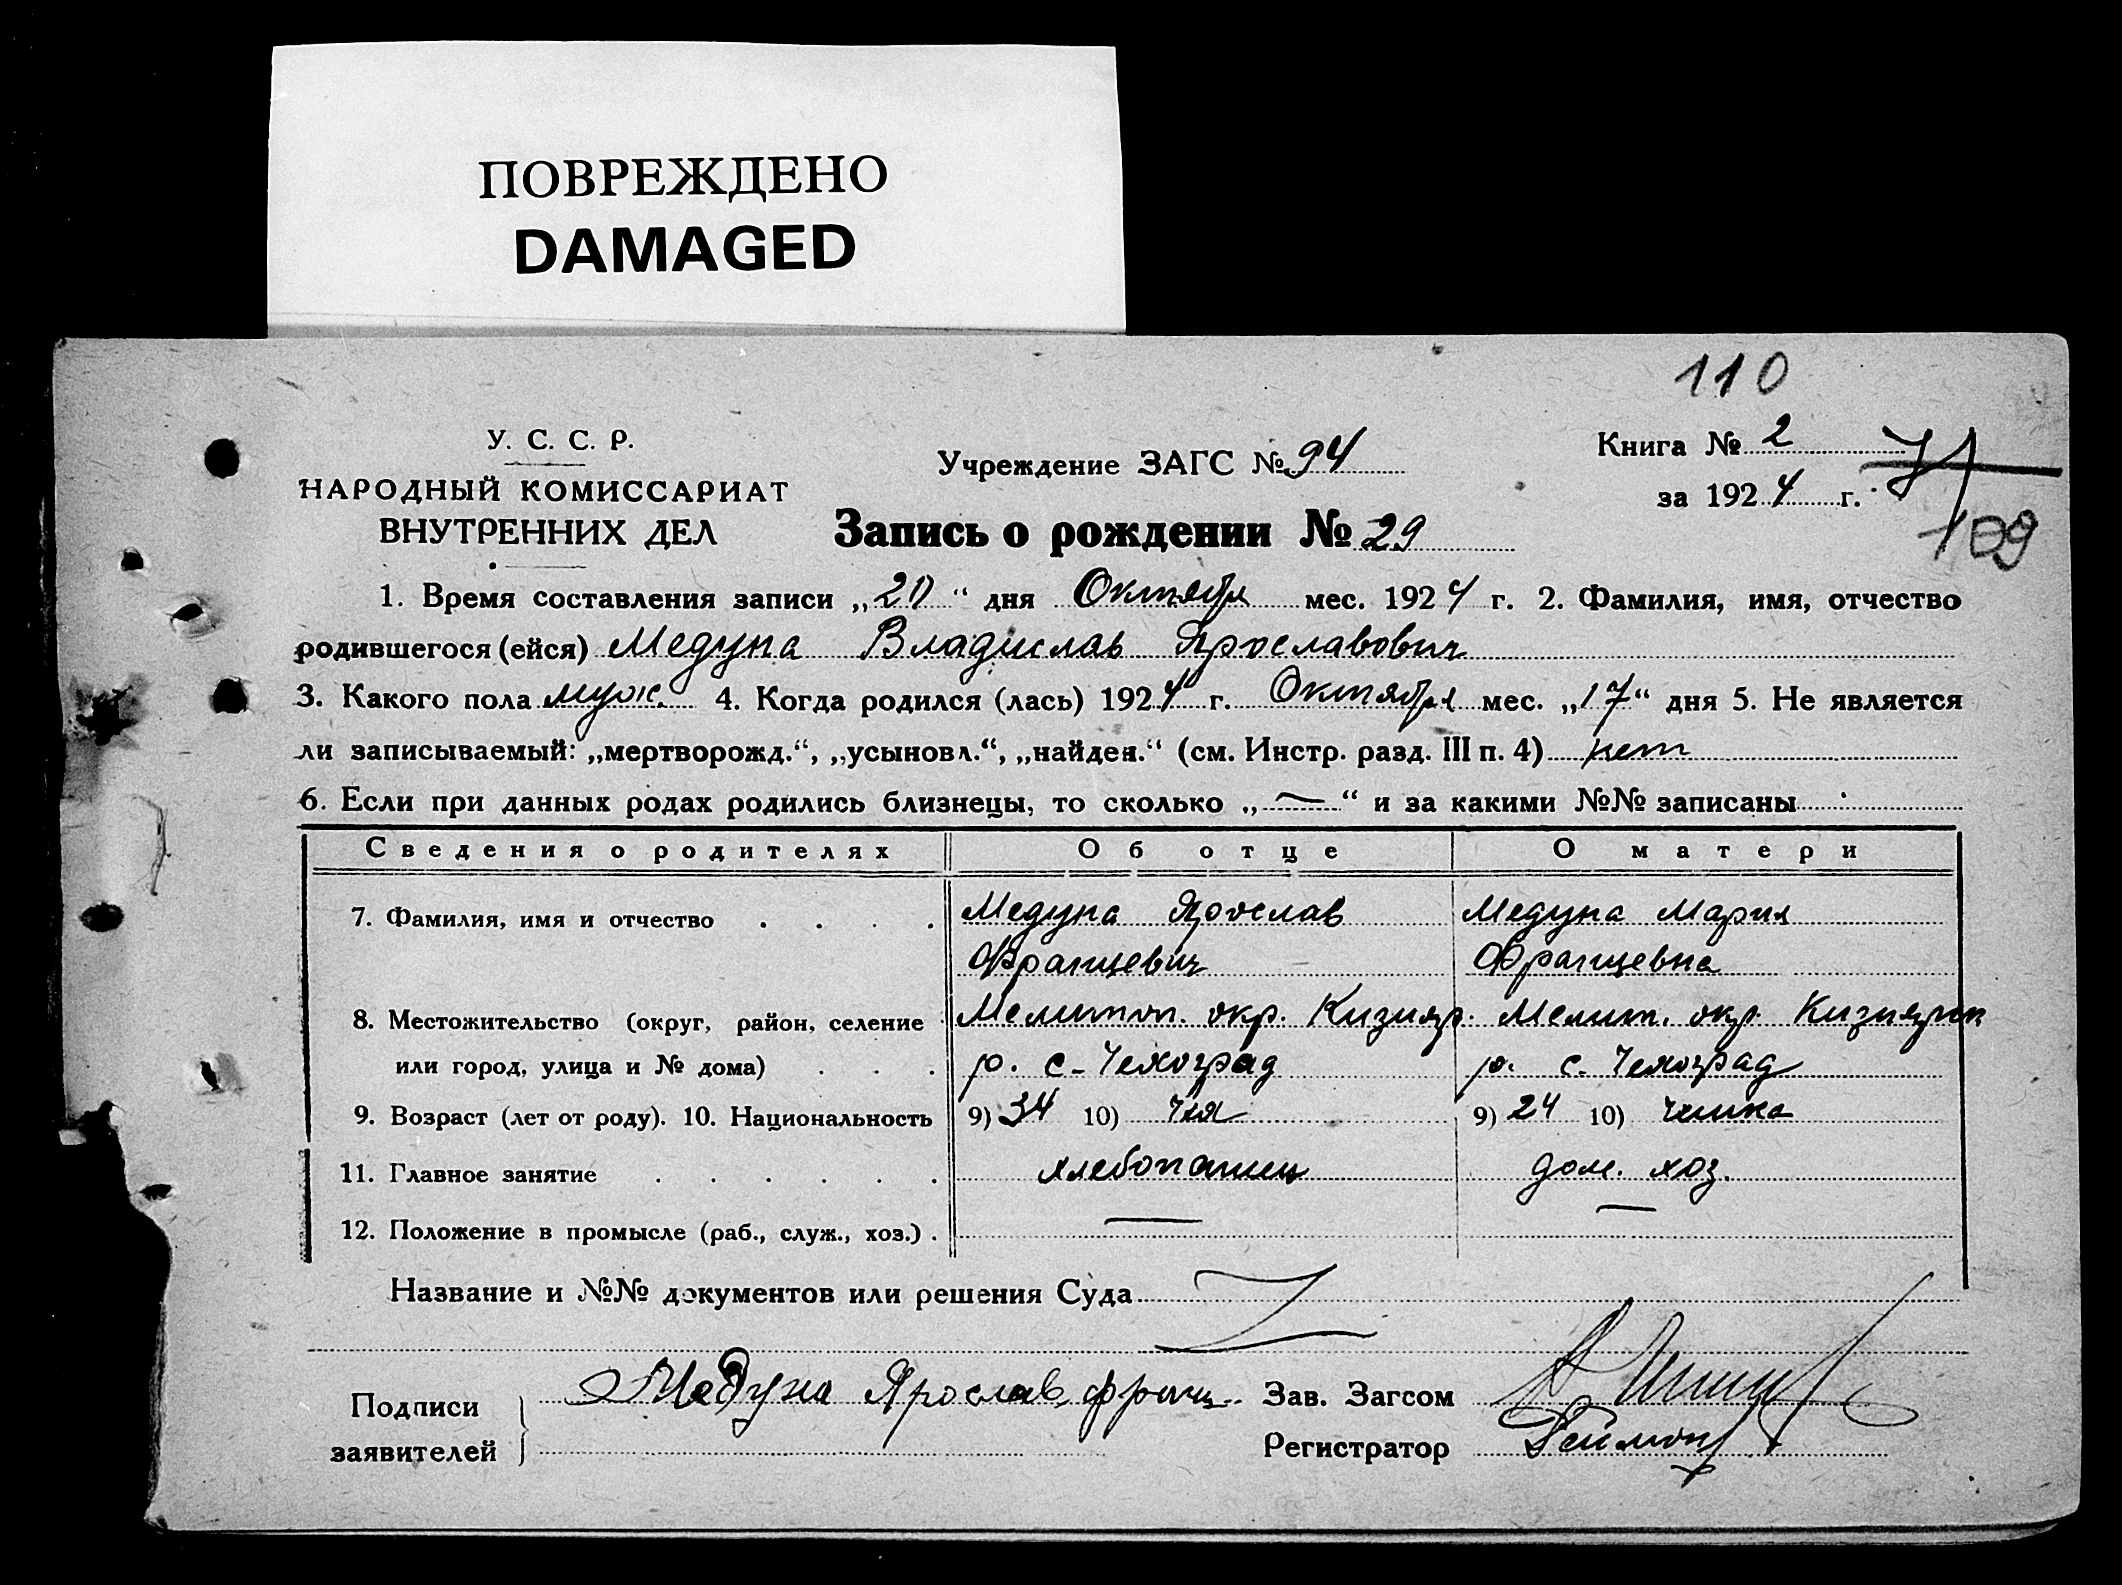 ПОВРЕЖДЕНО
DAMAGED
110
У. С. С. Р.
НАРОДНЫЙ КОМИССАРИАТ
ВНУТРЕННИХ ДЕЛ
Учреждение ЗАГС № 94
Книга № 2
за 1924 г.
71
109
Запись о рождении № 29
1. Время составления записи „20“ дня Октября мес. 1924 г. 2. Фамилия, имя, отчество
родившегося (ейся) Медуна Владислав Ярославович
3. Какого пола муж. 4. Когда родился (лась) 1924 г. Октября мес. „17“ дня 5. Не является
ли записываемый: „мертворожд.“, „усыновл.“, „найден.“ (см. Инстр. разд. III п. 4) нет
6. Если при данных родах родились близнецы, то сколько „—“ и за какими №№ записаны
Сведения о родителях Об отце О матери
7. Фамилия, имя и отчество . . . . Медуна Ярослав Медуна Мария
Францевич Францевна
8. Местожительство (округ, район, селение Мелитоп. окр. Кизияр. Мелит. окр. Кизиярск
или город, улица и № дома) . . . р. с. Чехоград р. с. Чехоград
9. Возраст (лет от роду). 10. Национальность 9) 34 10) чех 9) 24 10) чешка
11. Главное занятие . . . . . . хлебопашец дом. хоз.
12. Положение в промысле (раб., служ., хоз.) . — —
Название и №№ документов или решения Суда
Подписи
заявителей
Медуна Ярослав франц.
Зав. Загсом
Регистратор